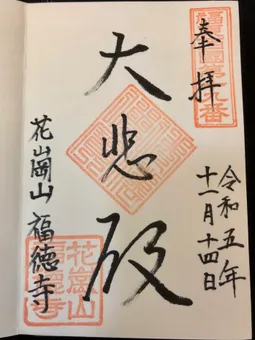 奉拝
大悲殿
令和五年
十一月十四日
花崗山 福徳寺